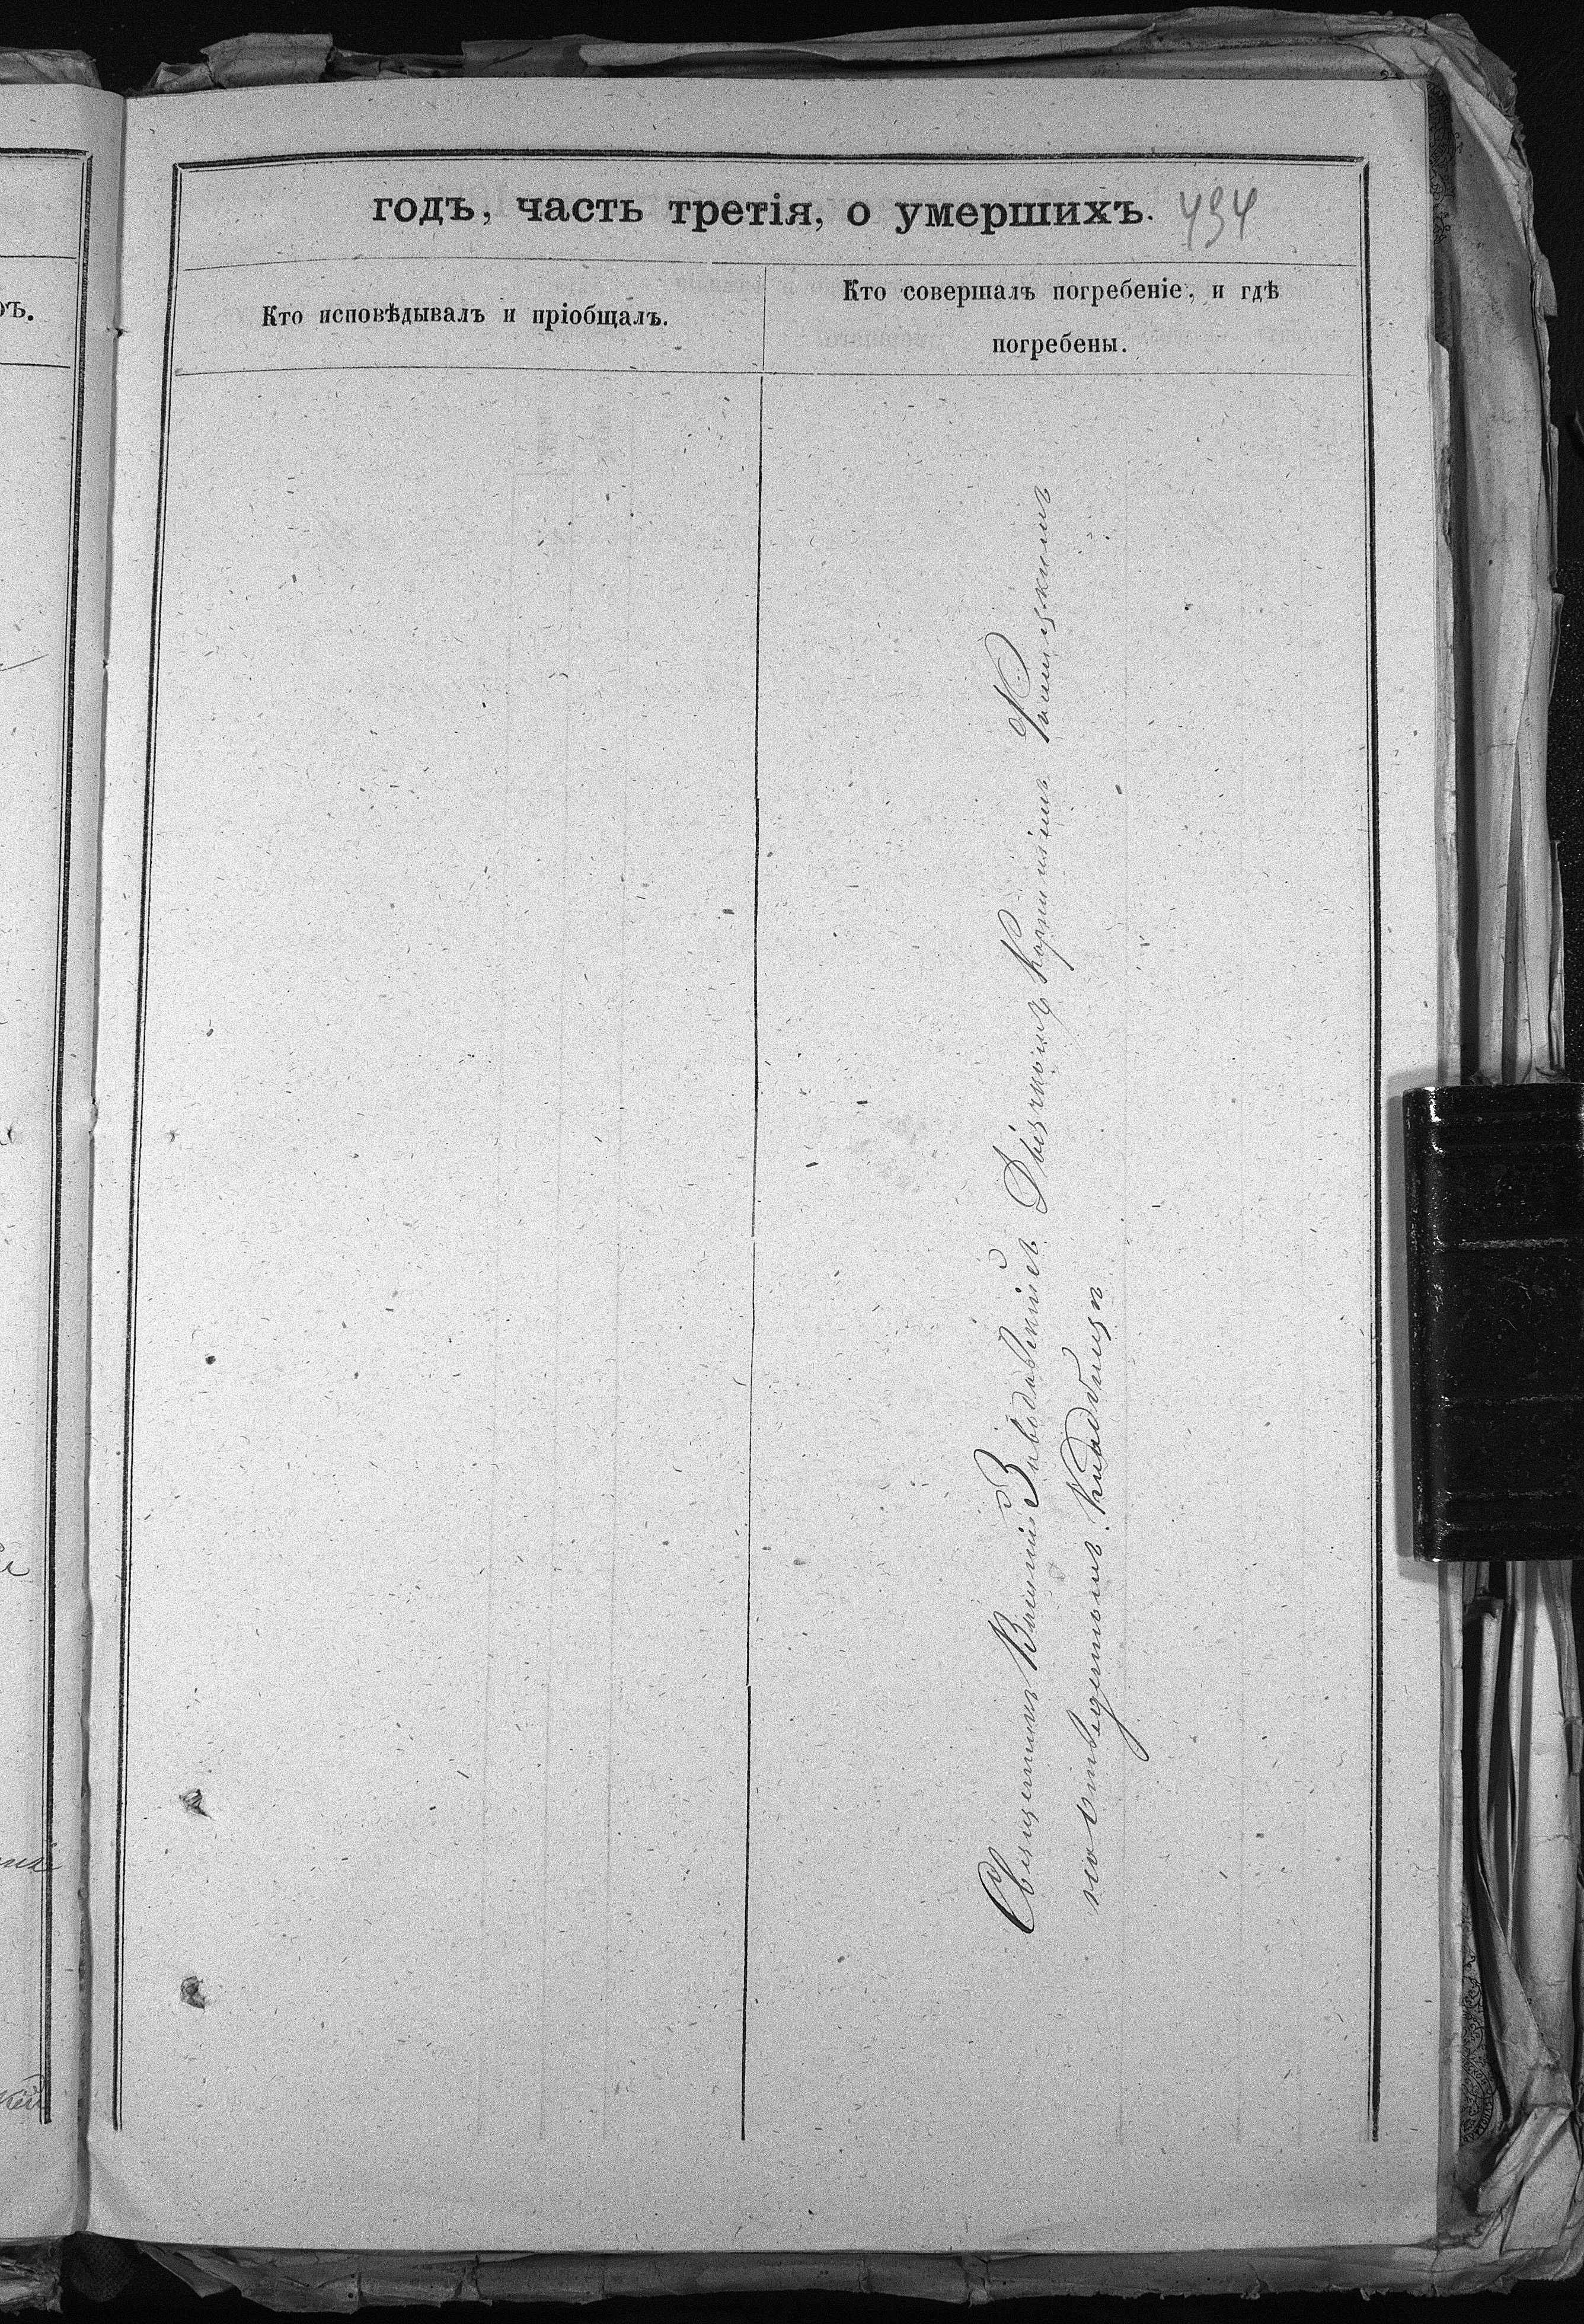 годъ, часть третія, о умершихъ. 494
Кто исповѣдывалъ и пріобщалъ.
Кто совершалъ погребеніе, и гдѣ
погребены.
Священникъ Василій Заводовскій съ Дьячкомъ Корниліемъ
на отведенномъ Кладбищѣ